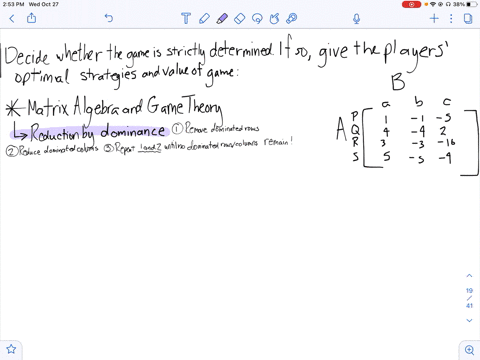 2:53 PM Wed Oct 27
38%
Decide whether the game is strictly determined. If so, give the players'
optimal strategies and value of game:
B
* Matrix Algebra and Game Theory
↳ Reduction by dominance ① Remove dominated rows
② Reduce dominated columns ③ Repeat 1 and 2 until no dominated rows/columns remain!
a b c
A
P 1 -1 -5
Q 4 -4 2
R 3 -3 -10
S 5 -5 -4
19
/
41